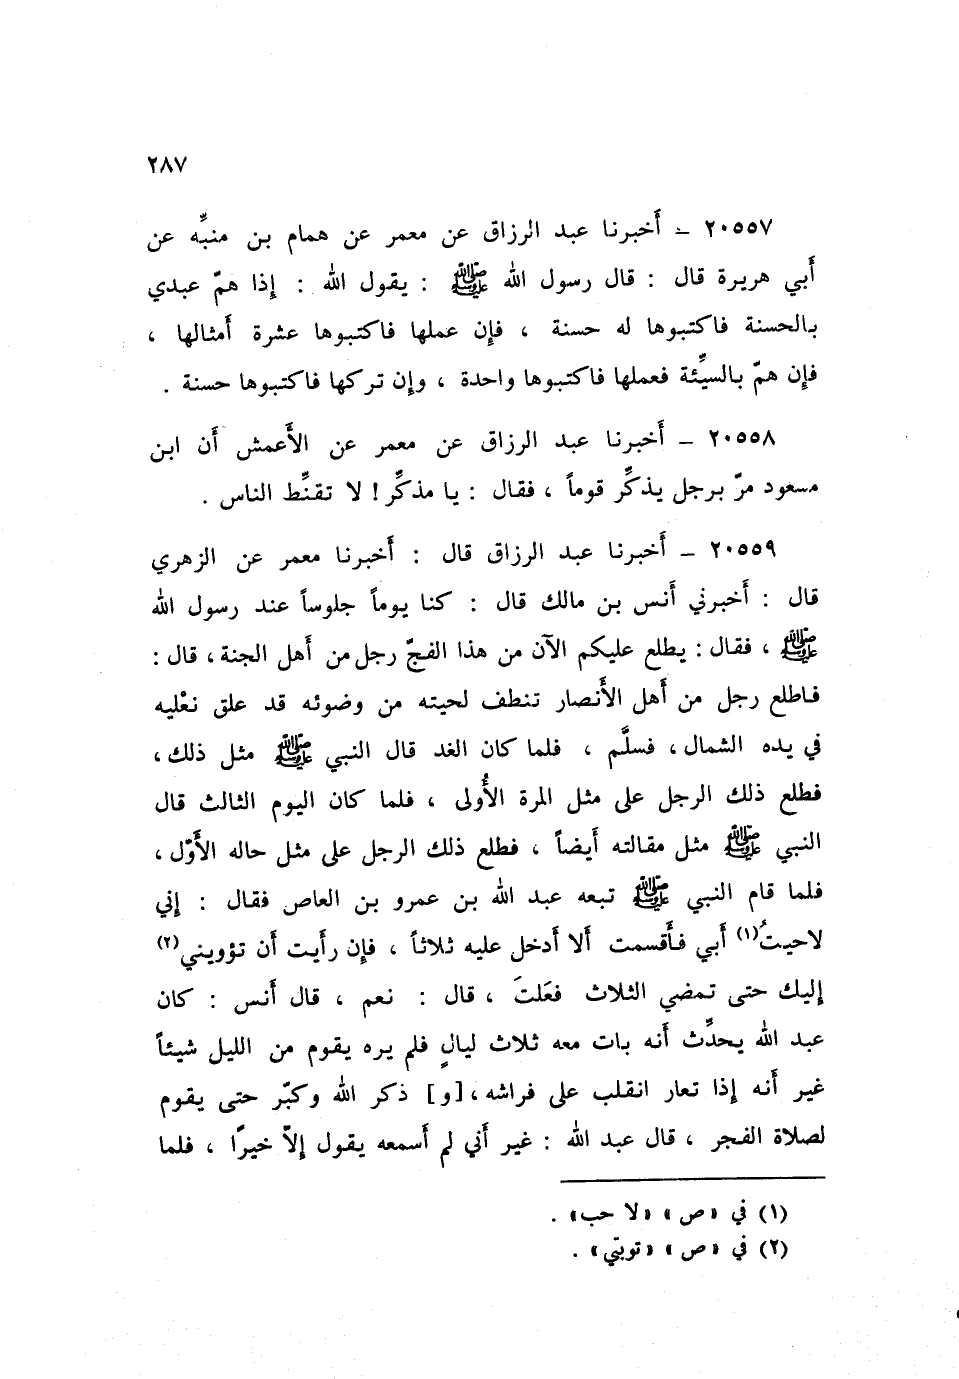 ٢٨٧
٢٠٥٥٧ – أخبرنا عبد الرزاق عن معمر عن همام بن منبِّه عن
أبي هريرة قال : قال رسول الله ﷺ : يقول الله : إذا همّ عبدي
بالحسنة فاكتبوها له حسنة ، فإن عملها فاكتبوها عشرة أمثالها ،
فإن همّ بالسيِّئة فعملها فاكتبوها واحدة ، وإن تركها فاكتبوها حسنة .
٢٠٥٥٨ – أخبرنا عبد الرزاق عن معمر عن الأعمش أن ابن
مسعود مرّ برجل يذكِّر قوماً ، فقال : يا مذكِّر ! لا تقنِّط الناس .
٢٠٥٥٩ – أخبرنا عبد الرزاق قال : أخبرنا معمر عن الزهري
قال : أخبرني أنس بن مالك قال : كنا يوماً جلوساً عند رسول الله
ﷺ ، فقال : يطلع عليكم الآن من هذا الفجّ رجل من أهل الجنة ، قال :
فاطلع رجل من أهل الأنصار تنطف لحيته من وضوئه قد علق نعْليه
في يده الشمال ، فسلَّم ، فلما كان الغد قال النبي ﷺ مثل ذلك ،
فطلع ذلك الرجل على مثل المرة الأُولى ، فلما كان اليوم الثالث قال
النبي ﷺ مثل مقالته أيضاً ، فطلع ذلك الرجل على مثل حاله الأوّل ،
فلما قام النبي ﷺ تبعه عبد الله بن عمرو بن العاص فقال : إني
لاحيتُ(١) أبي فأقسمت ألا أدخل عليه ثلاثاً ، فإن رأيت أن تؤويني(٢)
إليك حتى تمضي الثلاث فعَلتَ ، قال : نعم ، قال أنس : كان
عبد الله يحدِّث أنه بات معه ثلاث ليالٍ فلم يره يقوم من الليل شيئاً
غير أنه إذا تعار انقلب على فراشه ، [و] ذكر الله وكبّر حتى يقوم
لصلاة الفجر ، قال عبد الله : غير أني لم أسمعه يقول إلاّ خيرًا ، فلما
(١) في «ص» «لا حب» .
(٢) في «ص» «توبتي» .